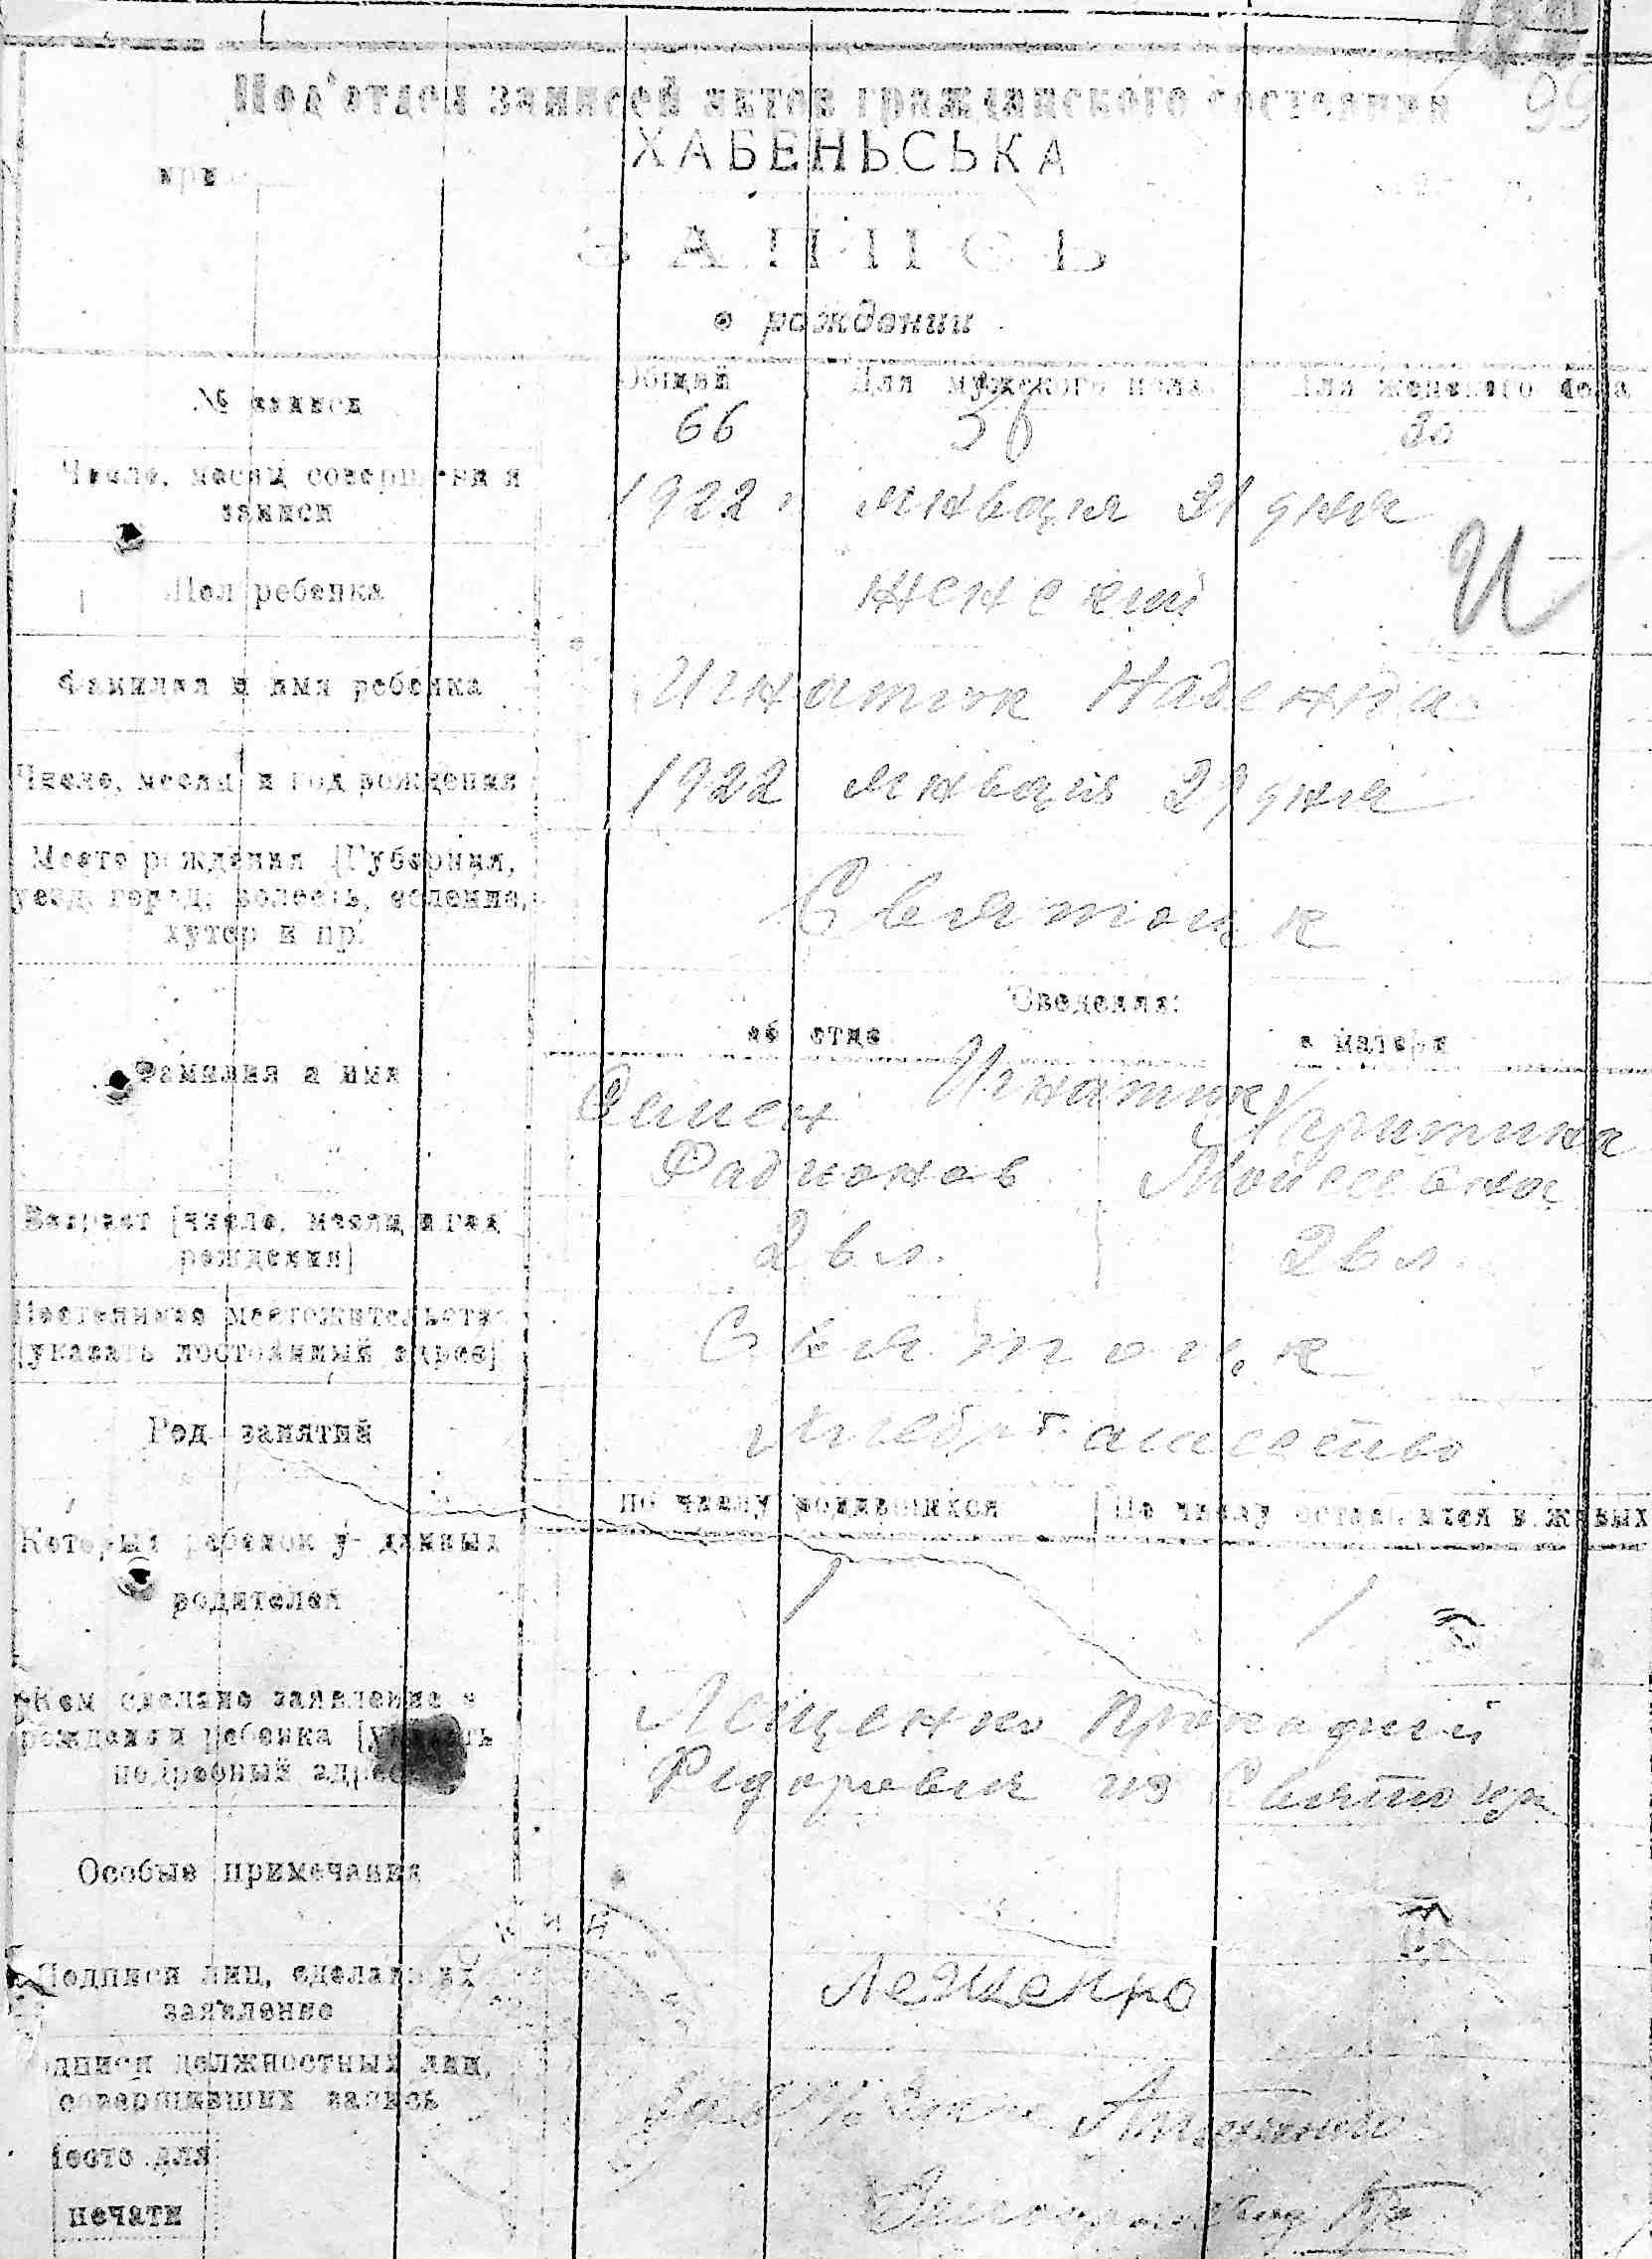 99
Под'отдел записей актов гражданского состояния
ХАБЕНЬСЬКА
при
ЗАПИСЬ
о рождении
№ записи
Общий
Для мужского пола
Для женского пола
66
36
30
Число, месяц совершения
записи
1922 января 31 дня
Пол ребенка
женский
И
Фамилия и имя ребенка
Игнатюк Надежда
Число, месяц и год рождения
1922 января 29 дня
Место рождения [Губерния,
уезд, город, волость, селение,
хутор и пр.
Сведения:
об отце
о матери
Фамилия и имя
Игнатюк
Семен
Харитина
Радионов
Мойсеевна
Возраст [число, месяц и год
рождения]
26 л.
26 л.
Постоянное местожительство
[указать постоянный адрес]
Род занятий
хлебопашество
по числу родившихся
По числу оставшихся в живых
Который ребенок у данных
родителей
1
1
Кем сделано заявление о
рождении ребенка [указать
подробный адрес
Лещенко
из
Особые примечания
Подписи лиц, сделавших
заявление
Лещенко
Подписи должностных лиц,
совершивших запись
Место для
печати